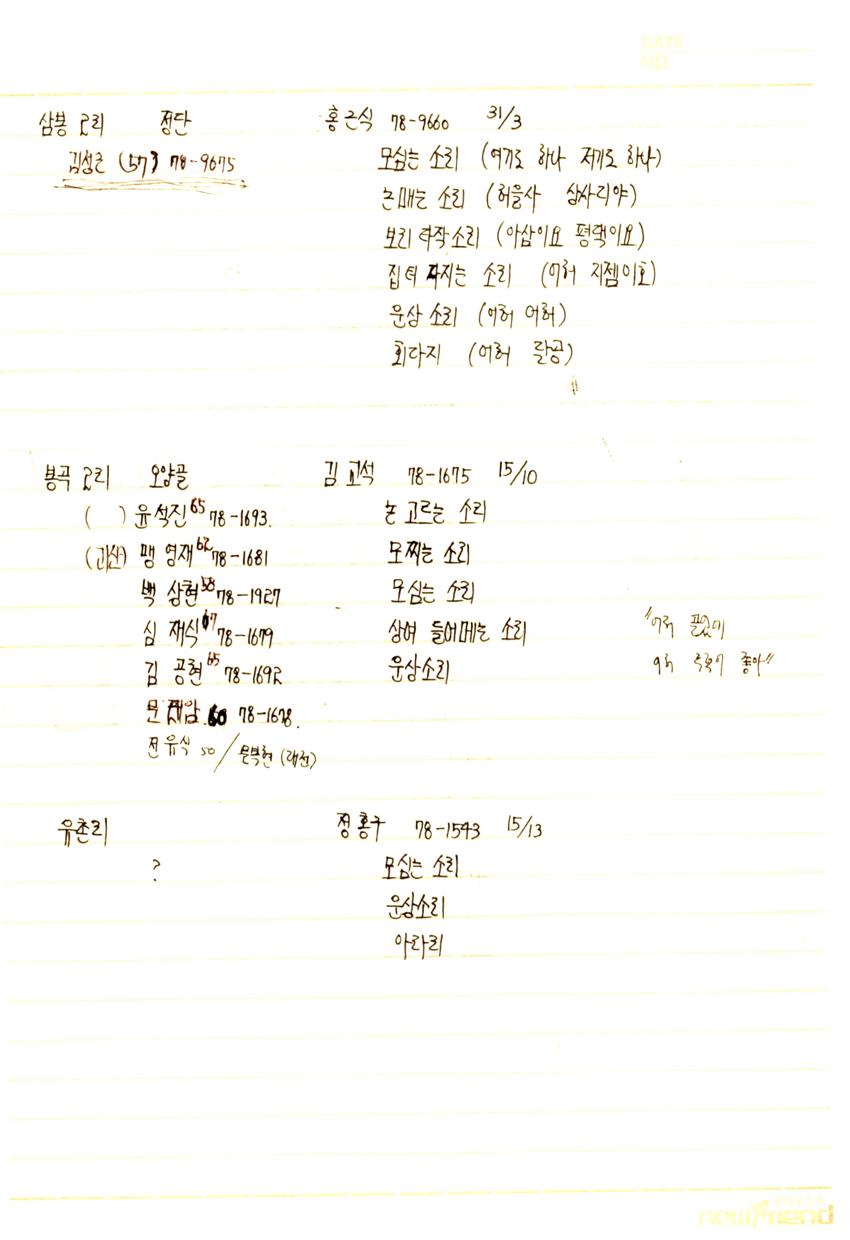 DATE
NO
삼봉 2리 정단 홍근식 78-9660 31/3
김성근 (57) 78-9675 모심는 소리 (여기도 하나 저기도 하나)
논매는 소리 (허을사 상사리야)
보리타작소리 (아삼이요 평택이요)
집터 다지는 소리 (어허 지점이호)
운상 소리 (어허 어허)
회다지 (어허 달공)
봉곡 2리 오양골 김교석 78-1675 15/10
( ) 윤석진 65 78-1693. 논 고르는 소리
(괴산) 맹영재 62 78-1681 모찌는 소리
백상현 58 78-1927 모심는 소리
심재식 67 78-1679 상여 들어메는 소리
김공현 65 78-1692 운상소리 좋아"
60 78-1628.
전유식 50 /
유촌리 정홍구 78-1543 15/13
? 모심는 소리
운상소리
아라리